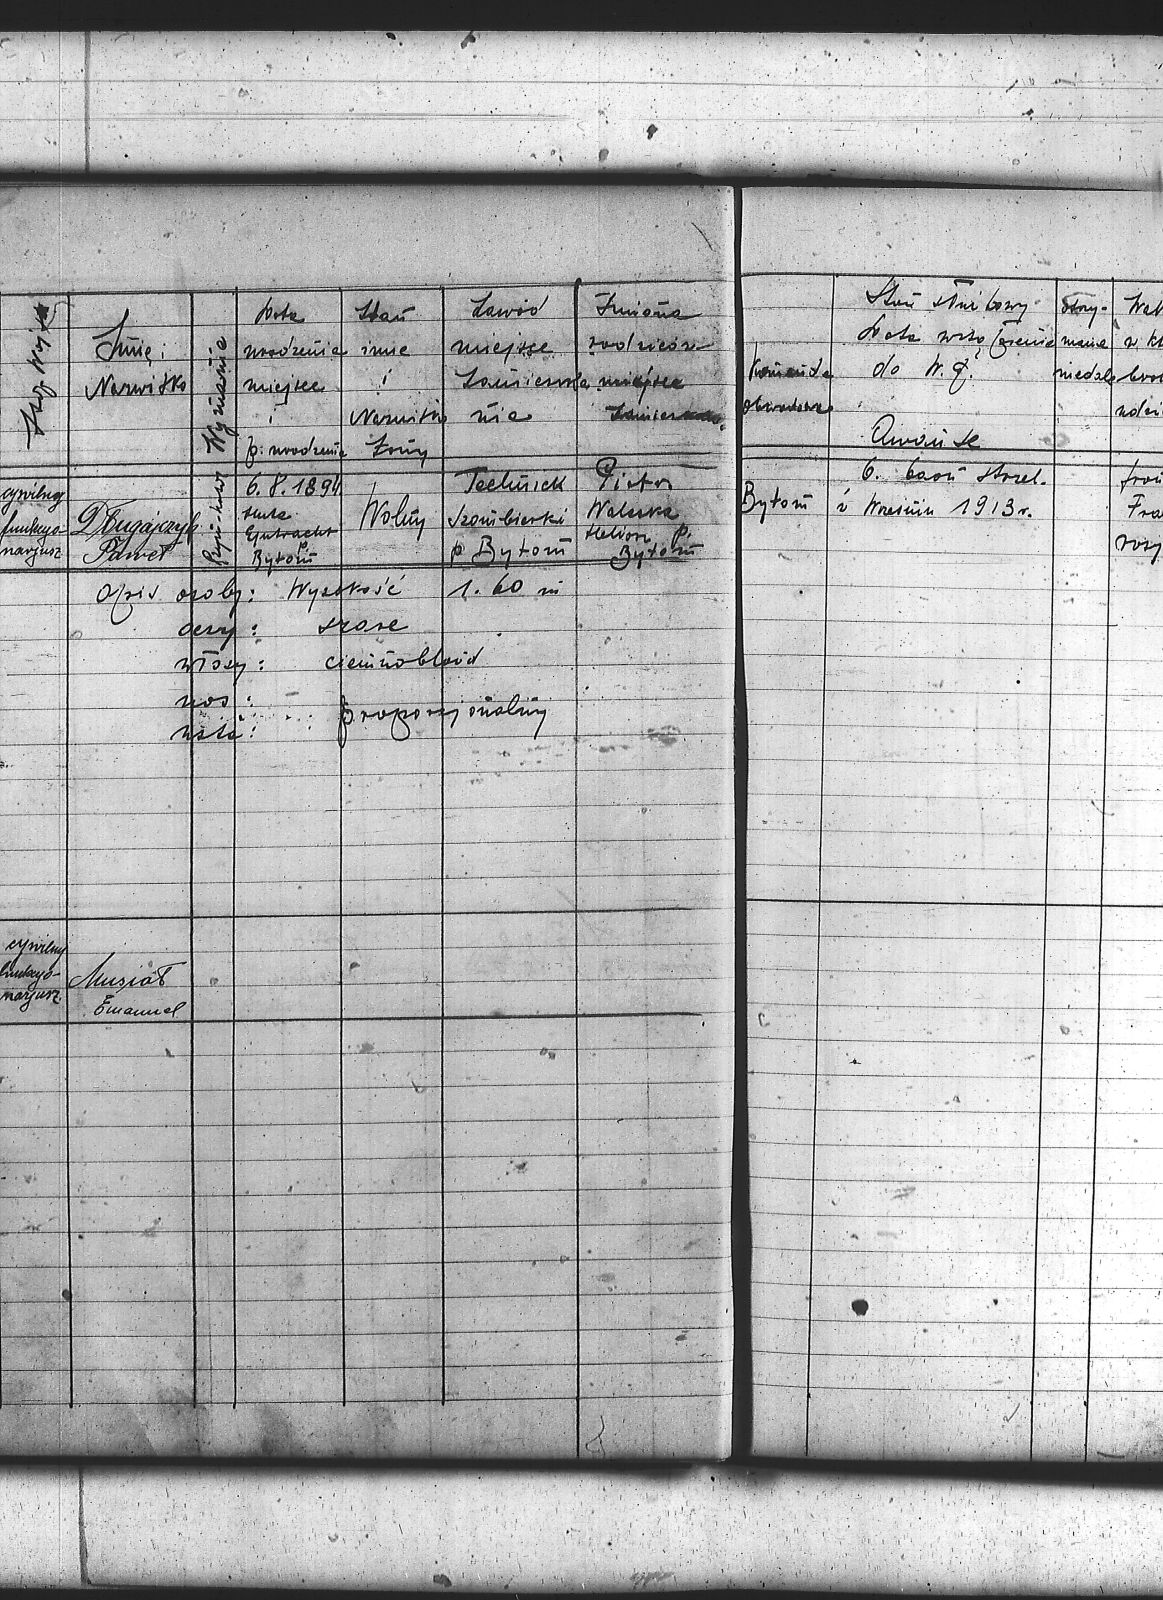 Imię i
Nazwisko
Wyznania
Data
urodzenia
miejsce
i
p. urodzenia
Stan
imie
i
Nazwisko
żony
Zawód
miejsce
Zamieszka
nia
Imiona
rodziców
miejsce
Komenda
obwodowa
Stan służbowy
Data
do W.
Awanse
Otrzy-
mane
medale
cywilny
funkcyo-
narjusz
Długajczyk
Paweł
6.8.1894
Huta
Gutracht
p.
Bytom
Wolny
Technick
Szombierki
p Bytom
Piotr
Waleska
p.
Bytom
Bytom
6. baon strzel.
Wrzesniu 1913 r.
Opis osoby: Wysokość 1.60 m
oczy: szare
włosy: ciemnoblond
nos:
usta: proporcjonalny
cywilny
funkcyo-
narjusz.
Musiał
Emanuel